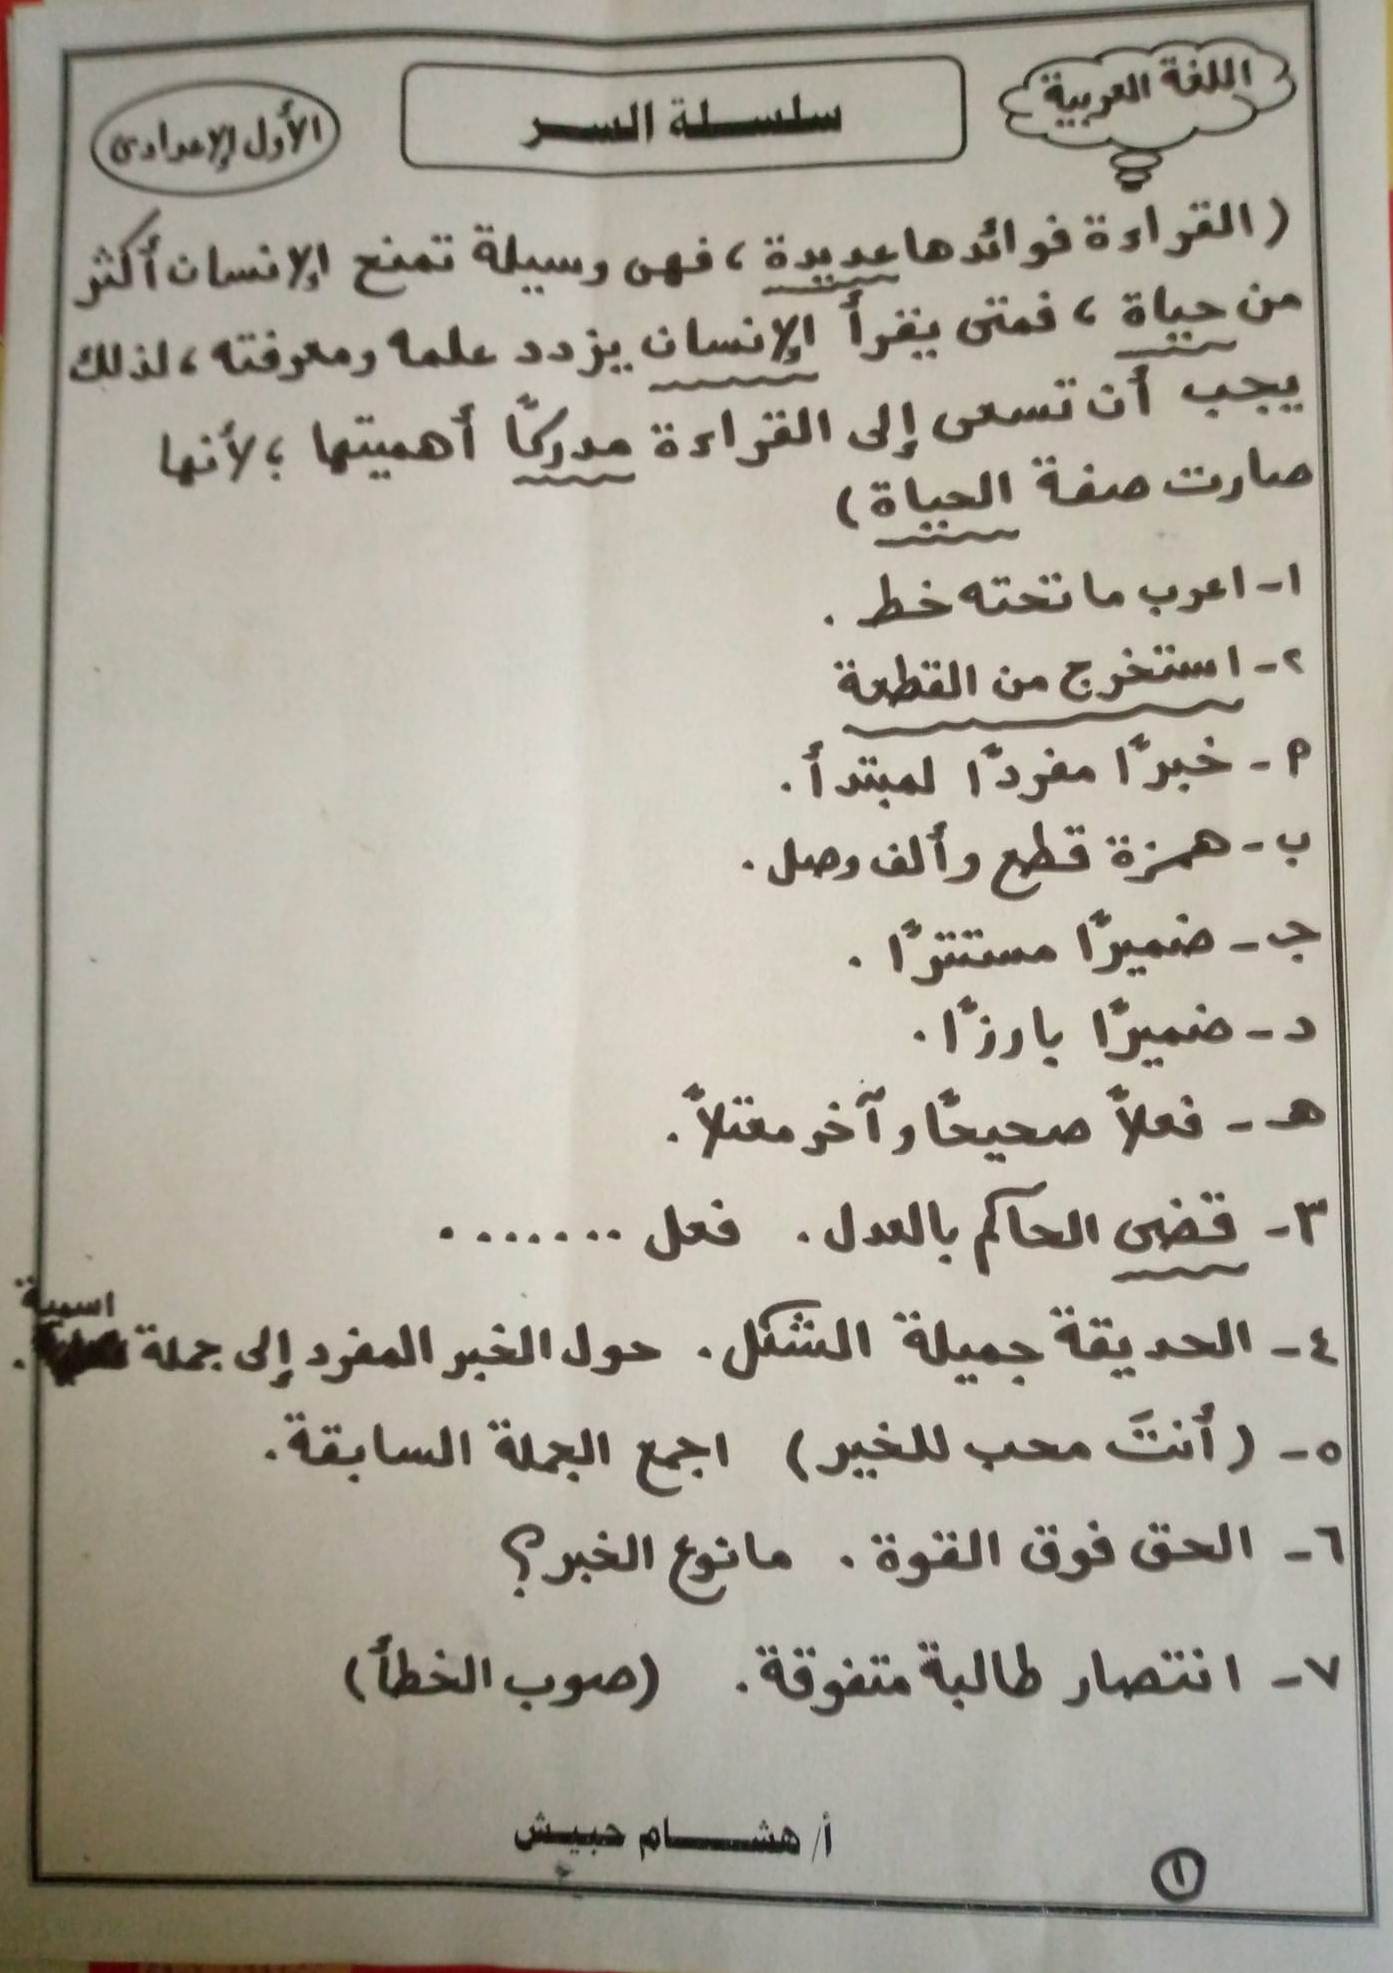 اللغة العربية
سلسلة السر
الأول الإعدادى
( القراءة فوائدها عديدة ، فهى وسيلة تمنح الإنسان أكثر
من حياة ، فمتى يقرأ الإنسان يزدد علمه ومعرفته ، لذلك
يجب أن تسعى إلى القراءة مدركًا أهميتها ؛ لأنها
صارت صفة الحياة )
١- اعرب ما تحته خط .
٢- استخرج من القطعة
م - خبرًا مفردًا لمبتدأ .
ب - همزة قطع وألف وصل .
جـ - ضميرًا مستترًا .
د - ضميرًا بارزًا .
هـ - فعلاً صحيحًا وآخر معتلاً .
٣- قضى الحاكم بالعدل . فعل .......
٤- الحديقة جميلة الشكل . حول الخبر المفرد إلى جملة اسمية .
٥- ( أنتَ محب للخير ) اجمع الجملة السابقة .
٦- الحق فوق القوة . ما نوع الخبر ؟
٧- انتصار طالبة متفوقة . (صوب الخطأ)
أ/ هشام حبيش
١